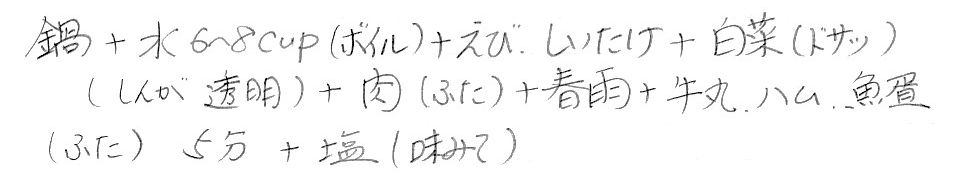 鍋 + 水 6~8cup (ボイル) + えび. しいたけ + 白菜 (ドサッ)
(しんが 透明) + 肉 (ふた) + 春雨 + 牛丸. ハム. 魚蛋
(ふた) 5分 + 塩 (味みて)